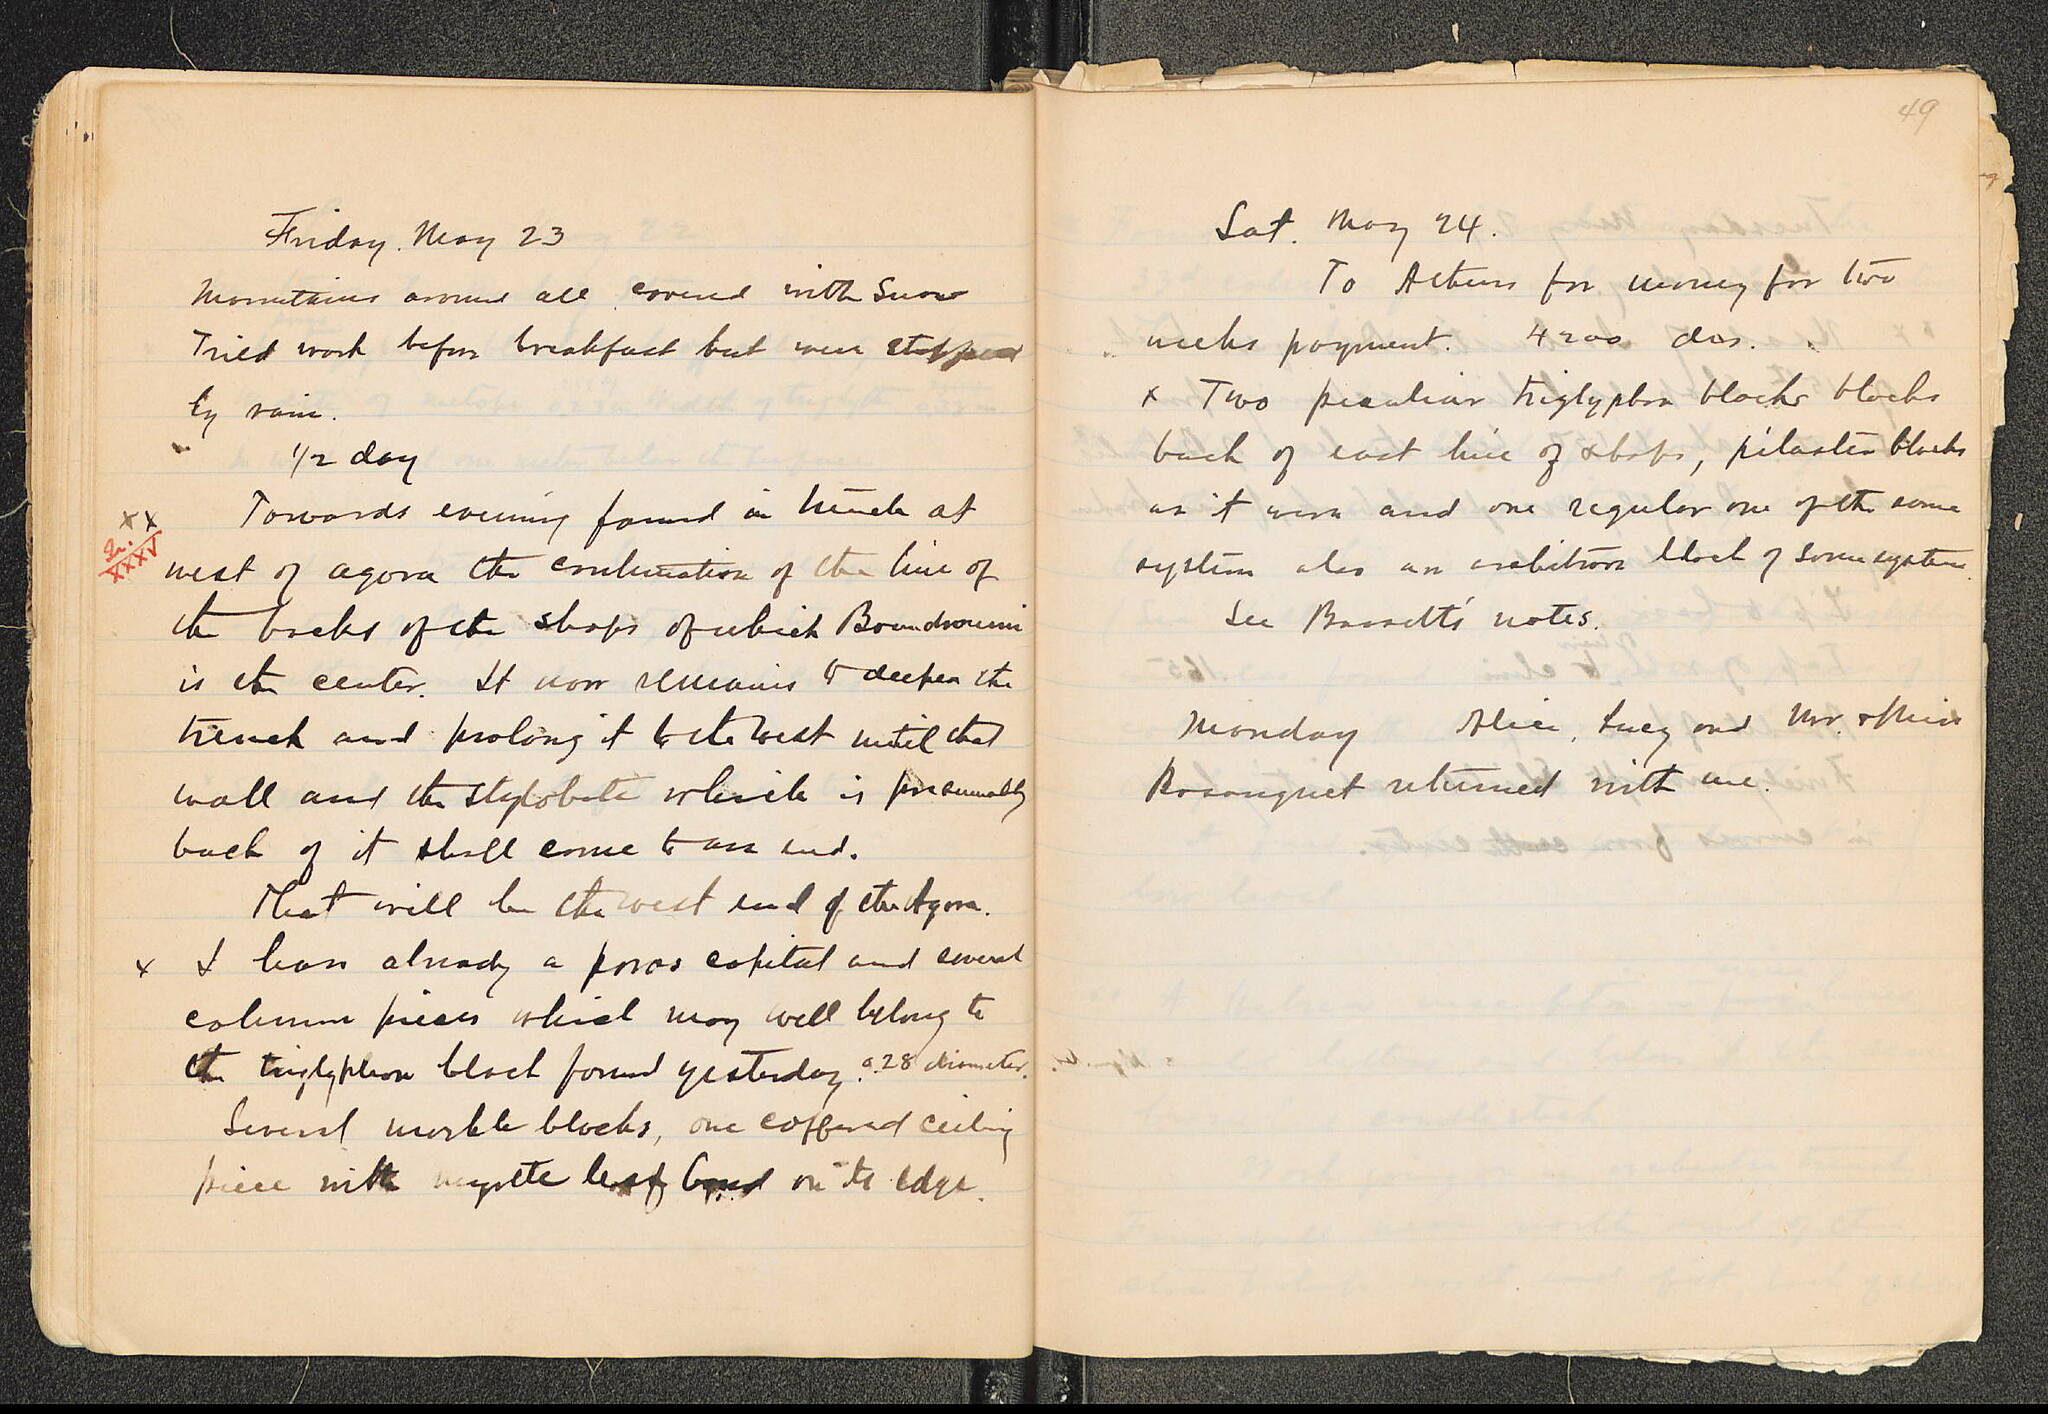 Friday. May 23
Mountains around all covered with Snow
Tried work before breakfast but were stopped
by rain.
1/2 day
Towards evening found in trench at
x x
Tr.
XXXV
west of agora the continuation of the line of
the backs of the shops of which Boudroumi
is the center. It now remains to deepen the
trench and prolong it to the west until that
wall and the stylobate which is presumably
back of it shall come to an end.
That will be the west end of the Agora.
x I have already a poros capital and several
column pieces which may well belong to
the triglyphon block found yesterday. 0.28 diameter.
Several marble blocks, one coffered ceiling
piece with myrtle leaf band on its edge.
49
Sat. May 24.
To Athens for money for two
weeks payment. 4200 drs.
x Two peculiar triglyphon blocks blocks
back of east line of shops, pilaster blocks
as it were and one regular one of the same
system also an architrave block of same system.
See Bassett's notes.
Monday Alice, Lucy and Mr. & Miss
Bosanquet returned with me.